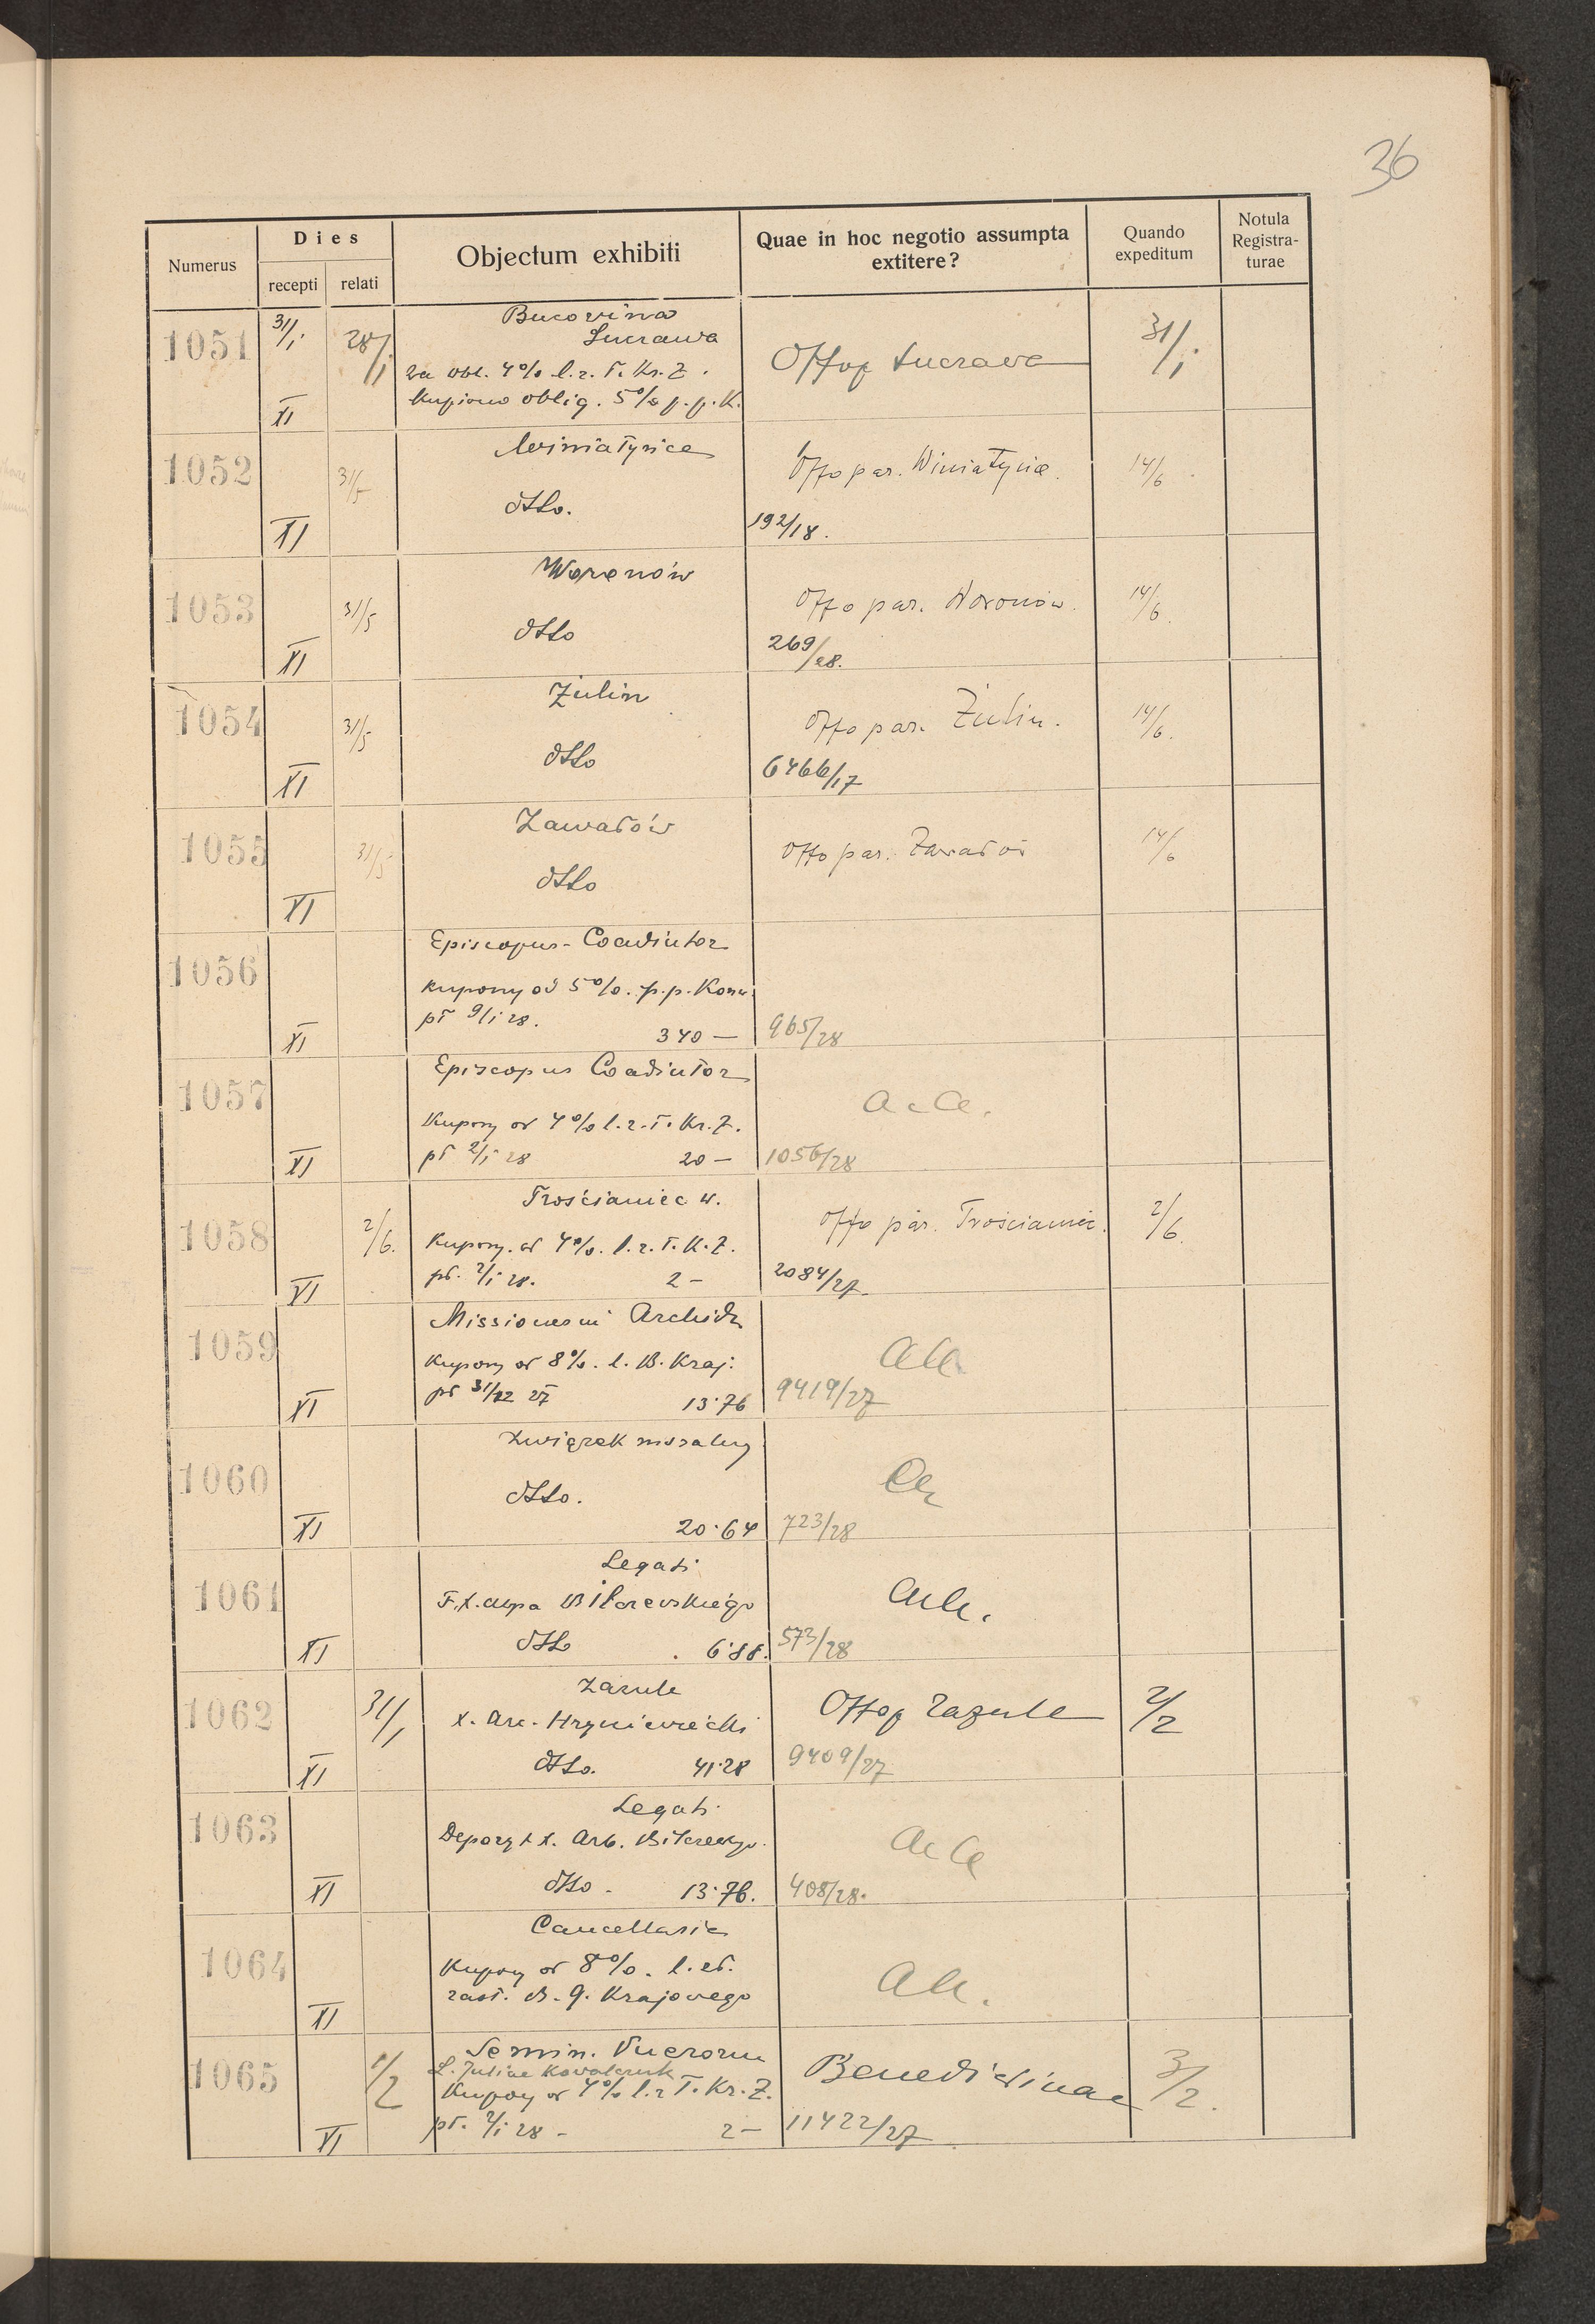 36
Numerus
Dies
recepti relati
Objectum exhibiti
Quae in hoc negotio assumpta
extitere?
Quando
expeditum
Notula
Registra-
turae
1051 31/1 28/1 XI
Bucovina
Suczawa
za obl. 4% l.z. T. Kr. Z.
kupiono oblig. 5% p.p.K.
Offop Suczawa 31/1
1052 31/5 XI
Winiatynce
dtto.
Offo par. Winiatynce. 14/6
192/18.
1053 31/5 XI
Woronów
dtto
Offo par. Woronów. 14/6.
269/28.
1054 31/5 XI
Żulin
dtto
Offo par. Żulin. 14/6.
6466/17
1055 31/5 XI
Zawadów
dtto
Offo par. Zawadów 14/6
1056 XI
Episcopus-Coadiutor
kupony od 5%. p.p. Konw.
pł 9/1 28.
340 —
965/28
1057 XI
Episcopus Coadiutor
Kupony od 4% l.z.T. Kr. Z.
pł 2/1 28 20 —
a c a.
1056/28
1058 2/6. XI
Trościaniec w.
Kupony od 4%. l.z.T.K.Z.
pł. 2/1 28. 2 —
Offo par. Trościaniec. 2/6.
2084/27.
1059 XI
Missionarii Archid.
Kupony od 8%. l. B. Kraj.
pł 31/12 27 13.76
9419/27
1060 XI
Związek mszalny
dtto.
20.64
723/28
1061 XI
Legati
F.X. Abpa Bilczewskiego
dtto 6.88.
573/28
1062 31/1 XI
Zazule
X. Arc. Hryniewiecki
dtto. 41.28
Offop Zazule 2/2
9409/27
1063 XI
Legati
Depozyt X. Arb. Bilczewsgo.
dtto. 13.76.
408/28.
1064 XI
Cancellaria
Kupony od 8%. l.
zast. B. G. Krajowego
1065 1/2 XI
Semin. Puerorum
L. Juliae Kowalczuk
Kupony od 4% l.z T. Kr. Z.
pł. 2/1 28 - 2 —
Benedictinae 3/2.
11422/27.